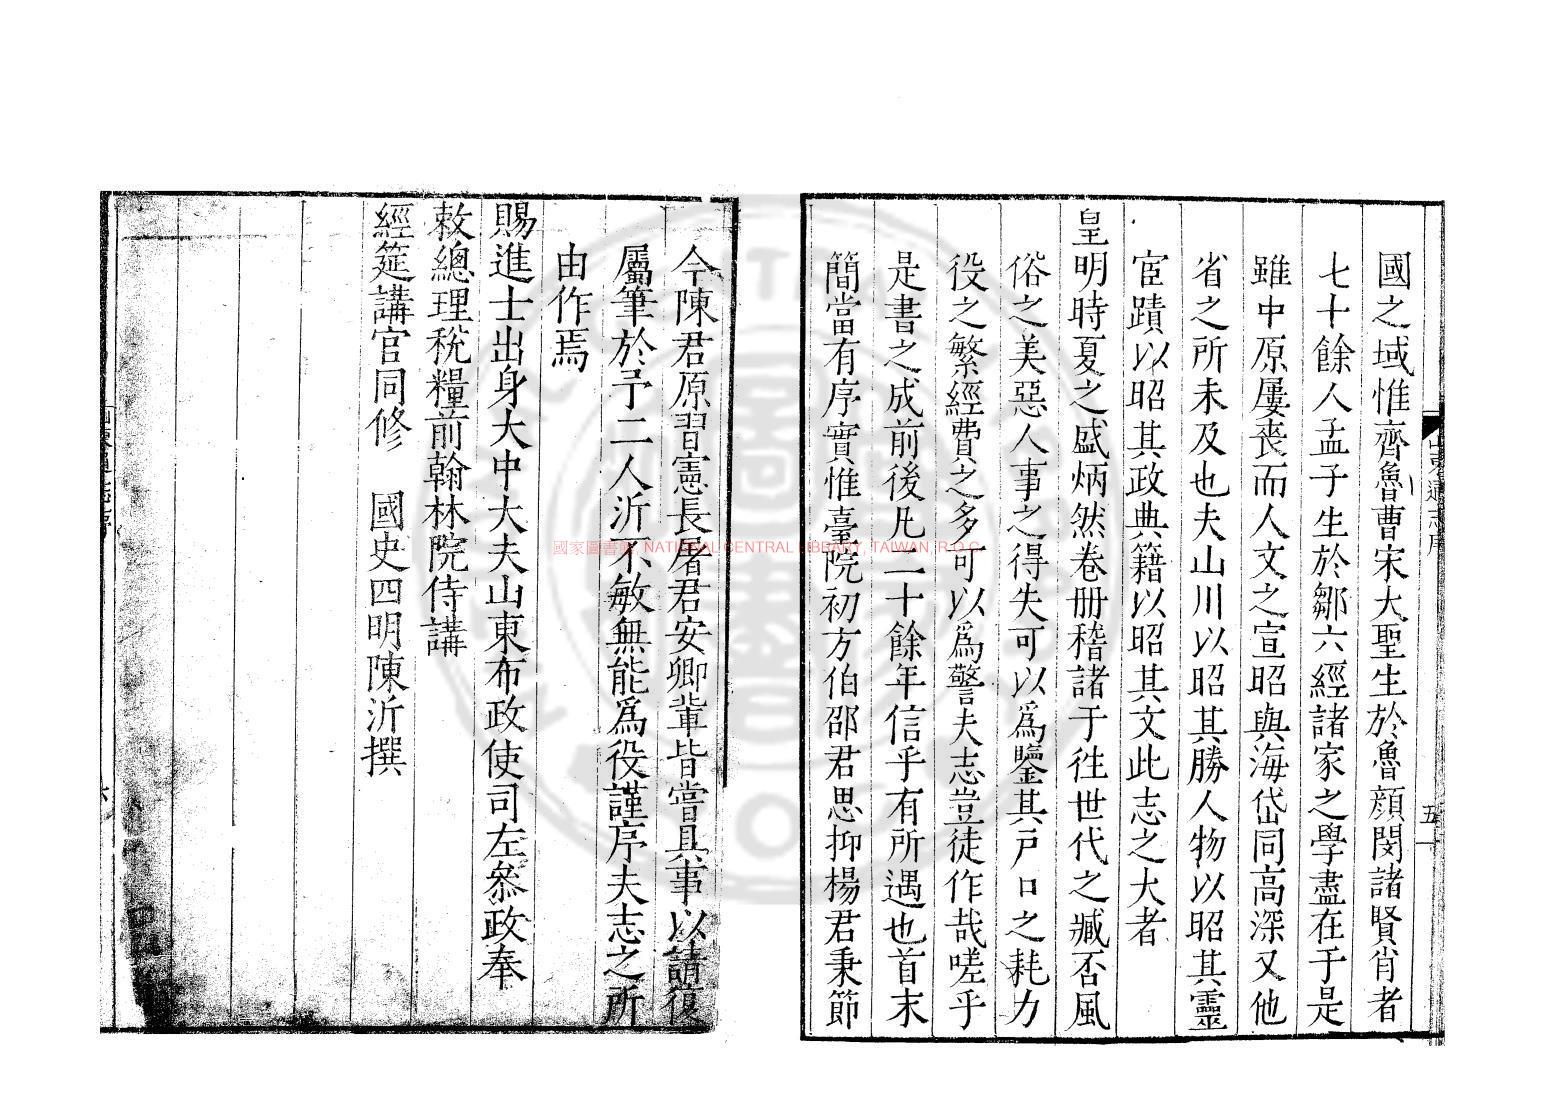 國之域惟齊魯曹宋大聖生於魯顏閔諸賢肖者
七十餘人孟子生於鄒六經諸家之學盡在于是
雖中原屢喪而人文之宣昭與海岱同高深又他
省之所未及也夫山川以昭其勝人物以昭其靈
宦蹟以昭其政典籍以昭其文此志之大者
皇明時夏之盛炳然卷冊稽諸于徃世代之臧否風
俗之美惡人事之得失可以爲鑒其戸口之耗力
役之繁經費之多可以爲警夫志豈徒作哉嗟乎
是書之成前後凡二十餘年信乎有所遇也首末
簡當有序實惟臺院初方伯邵君思抑楊君秉節
今陳君原習憲長屠君安卿輩皆嘗具事以請復
屬筆於予二人沂不敏無能爲役謹序夫志之所
由作焉
賜進士出身大中大夫山東布政使司左叅政奉
敕總理稅糧前翰林院侍講
經筵講官同修 國史四明陳沂撰
山東通志序
五
六
國家圖書館, NATIONAL CENTRAL LIBRARY, TAIWAN (R.O.C.